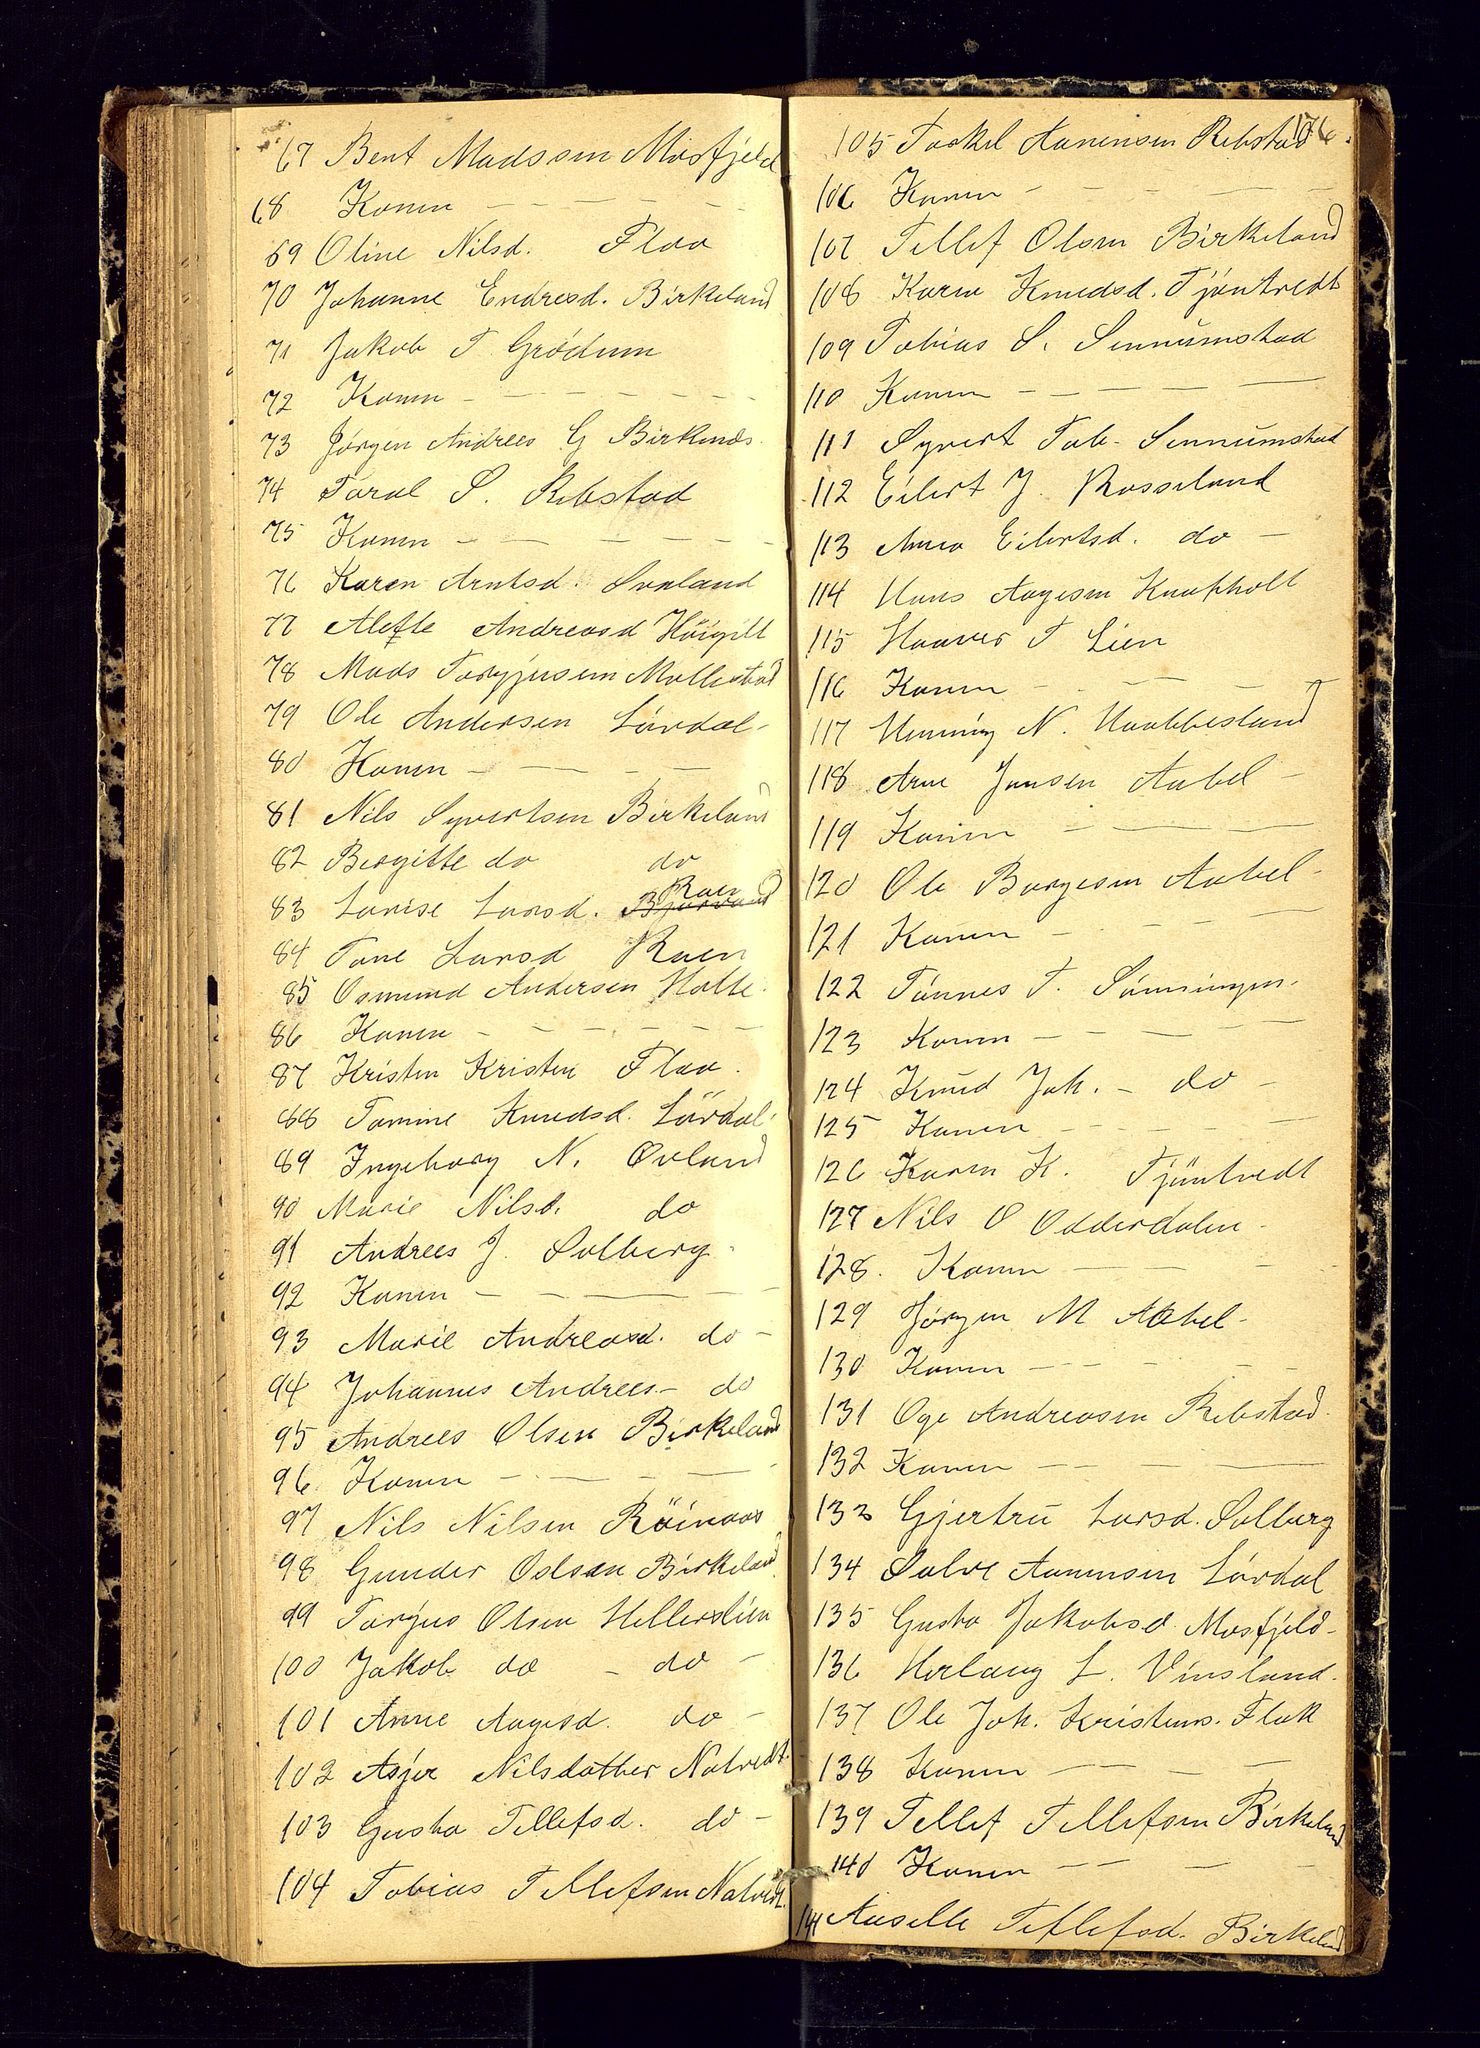 67 Bent Madssen Mosfjeld
68 Konen - - - - -
69 Oline Nilsd. Flaa
70 Johanne Endresd. Birkeland
71 Jakob T. Grödum
72 Konen - - - - - -
73 Jørgen Andreas G Birklands
74 Taral S. Rebstad
75 Konen - - - - - -
76 Karen Arntsd. Ovaland
77 Alefte Andreasd Höigilt
78 Mads Torgjusen Mollestad
79 Ole Andersen Lördal -
80 Konen - - - -
81 Nils Syvertsen Birkeland
82 Bergitte do do
83 Lovise Larsd. Raen
84 Tone Larsd Raen
85 Osmund Andersen Hatte.
86 Konen - - - - - -
87 Kristen Kristen Flaa.
88 Tomine Knudsd. Lördal.
89 Ingeborg N. Øvland
90 Marie Nilsd. do
91 Andreas J. Solberg.
92 Konen - - - - -
93 Marie Andreasd. do -
94 Johannes Andreas - do
95 Andreas Olsen Birkeland
96 Konen - - - - -
97 Nils Nilsen Röinaas
98 Gunder Oslsen Birkeland
99 Torjus Olsen Hellerslien
100 Jakob do - do -
101 Anne Aagesd. do -
102 Asjer Nilsdatter Natvedt.
103 Gusta Tellefsd. do -
104 Tobias Tellefsen Natvedt.
176.
105 Torkel Aanensen Rebstad
106 Konen - - - - -
107 Tellef Olsen Birkeland
108 Karen Knudsd. Tjöntvedt
109 Tobias S. Sennumstad
110 Konen - - - -
111 Syvert Tob- Sennumstad
112 Eilert J. Rosseland
113 Anna Eilertsd. do -
114 Hans Aagesen Knapholt
115 Haaver T Lien
116 Konen - - - -
117 Henning N. Haabbesland
118 Arne Jensen Aabel -
119 Konen - - -
120 Ole Borgesen Aabel -
121 Konen - - - -
122 Tönnes T. Sönningen.
123 Konen - - - -
124 Knud Joh. - do -
125 Konen - - - - -
126 Karen K. Tjöntvedt
127 Nils O Odderdalen -
128. Konen - - - -
129 Jørgen M Aabel -
130 Konen - - - - -
131 Oge Andreasen Rebstad.
132 Konen - - - -
133 Gjertru Larsd. Solberg
134 Salve Aanensen Lördal
135 Gusta Jakobsd. Mosfjeld -
136 Herlaug L. Vinsland.
137 Ole Joh. Kristens. Flak
138 Konen - - - -
139 Tellef Tellefsen Birkeland
140 Konen - - - -
141 Aaselle Tellefsd. Birkeland